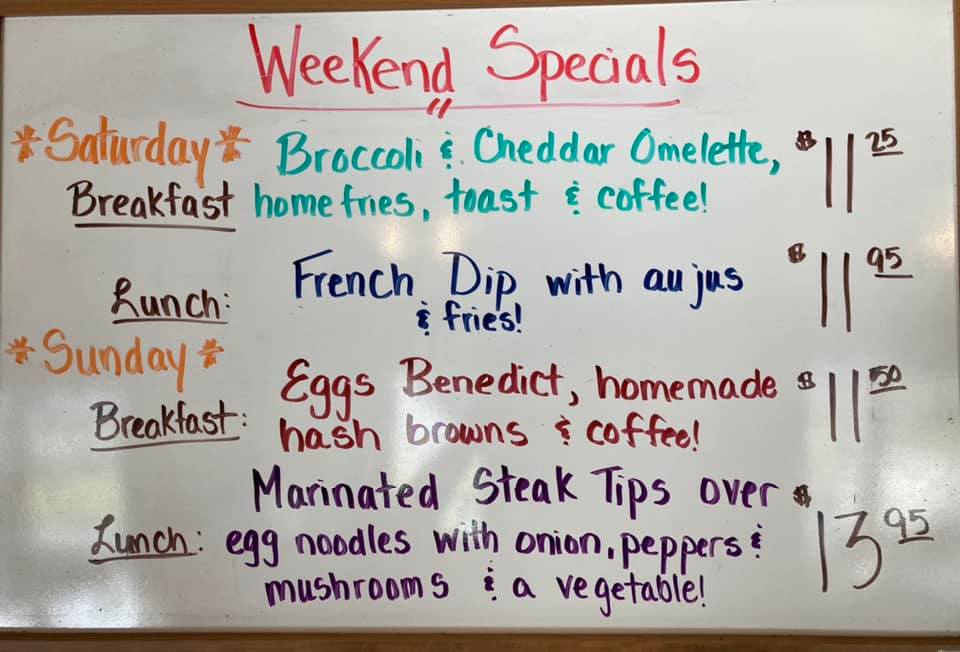 Weekend Specials
*Saturday* Broccoli & Cheddar Omelette, $11 25
Breakfast home fries, toast & coffee!
Lunch: French Dip with au jus $11 95
& fries!
*Sunday*
Breakfast: Eggs Benedict, homemade $11 50
hash browns & coffee!
Marinated Steak Tips over $13 95
Lunch: egg noodles with onion, peppers &
mushrooms & a vegetable!